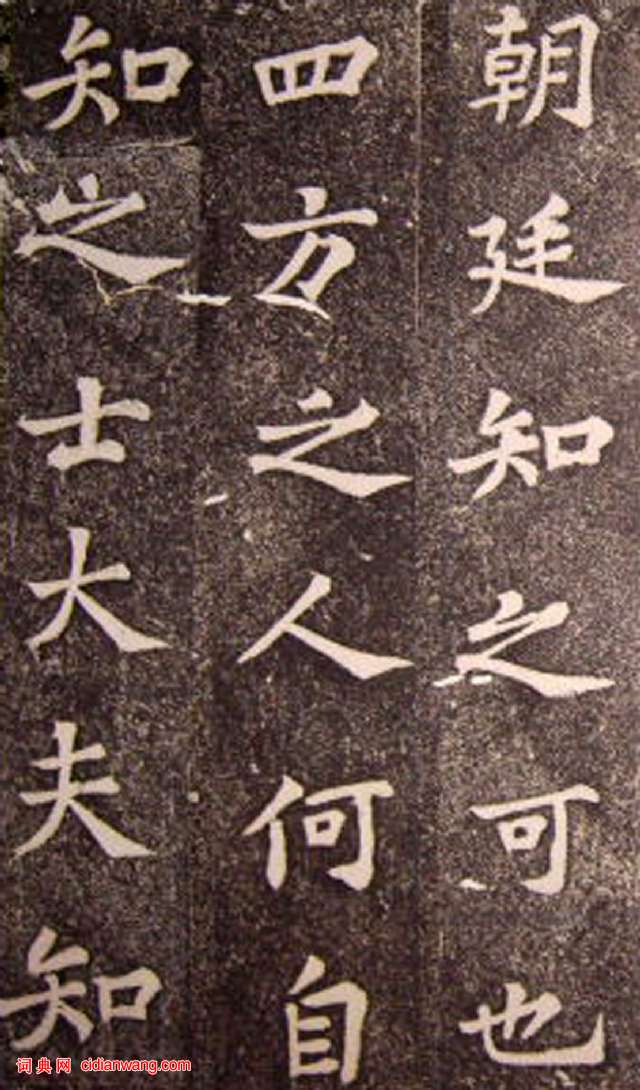 朝廷知之可也
四方之人何自
知之士大夫知
词典网 cidianwang.com